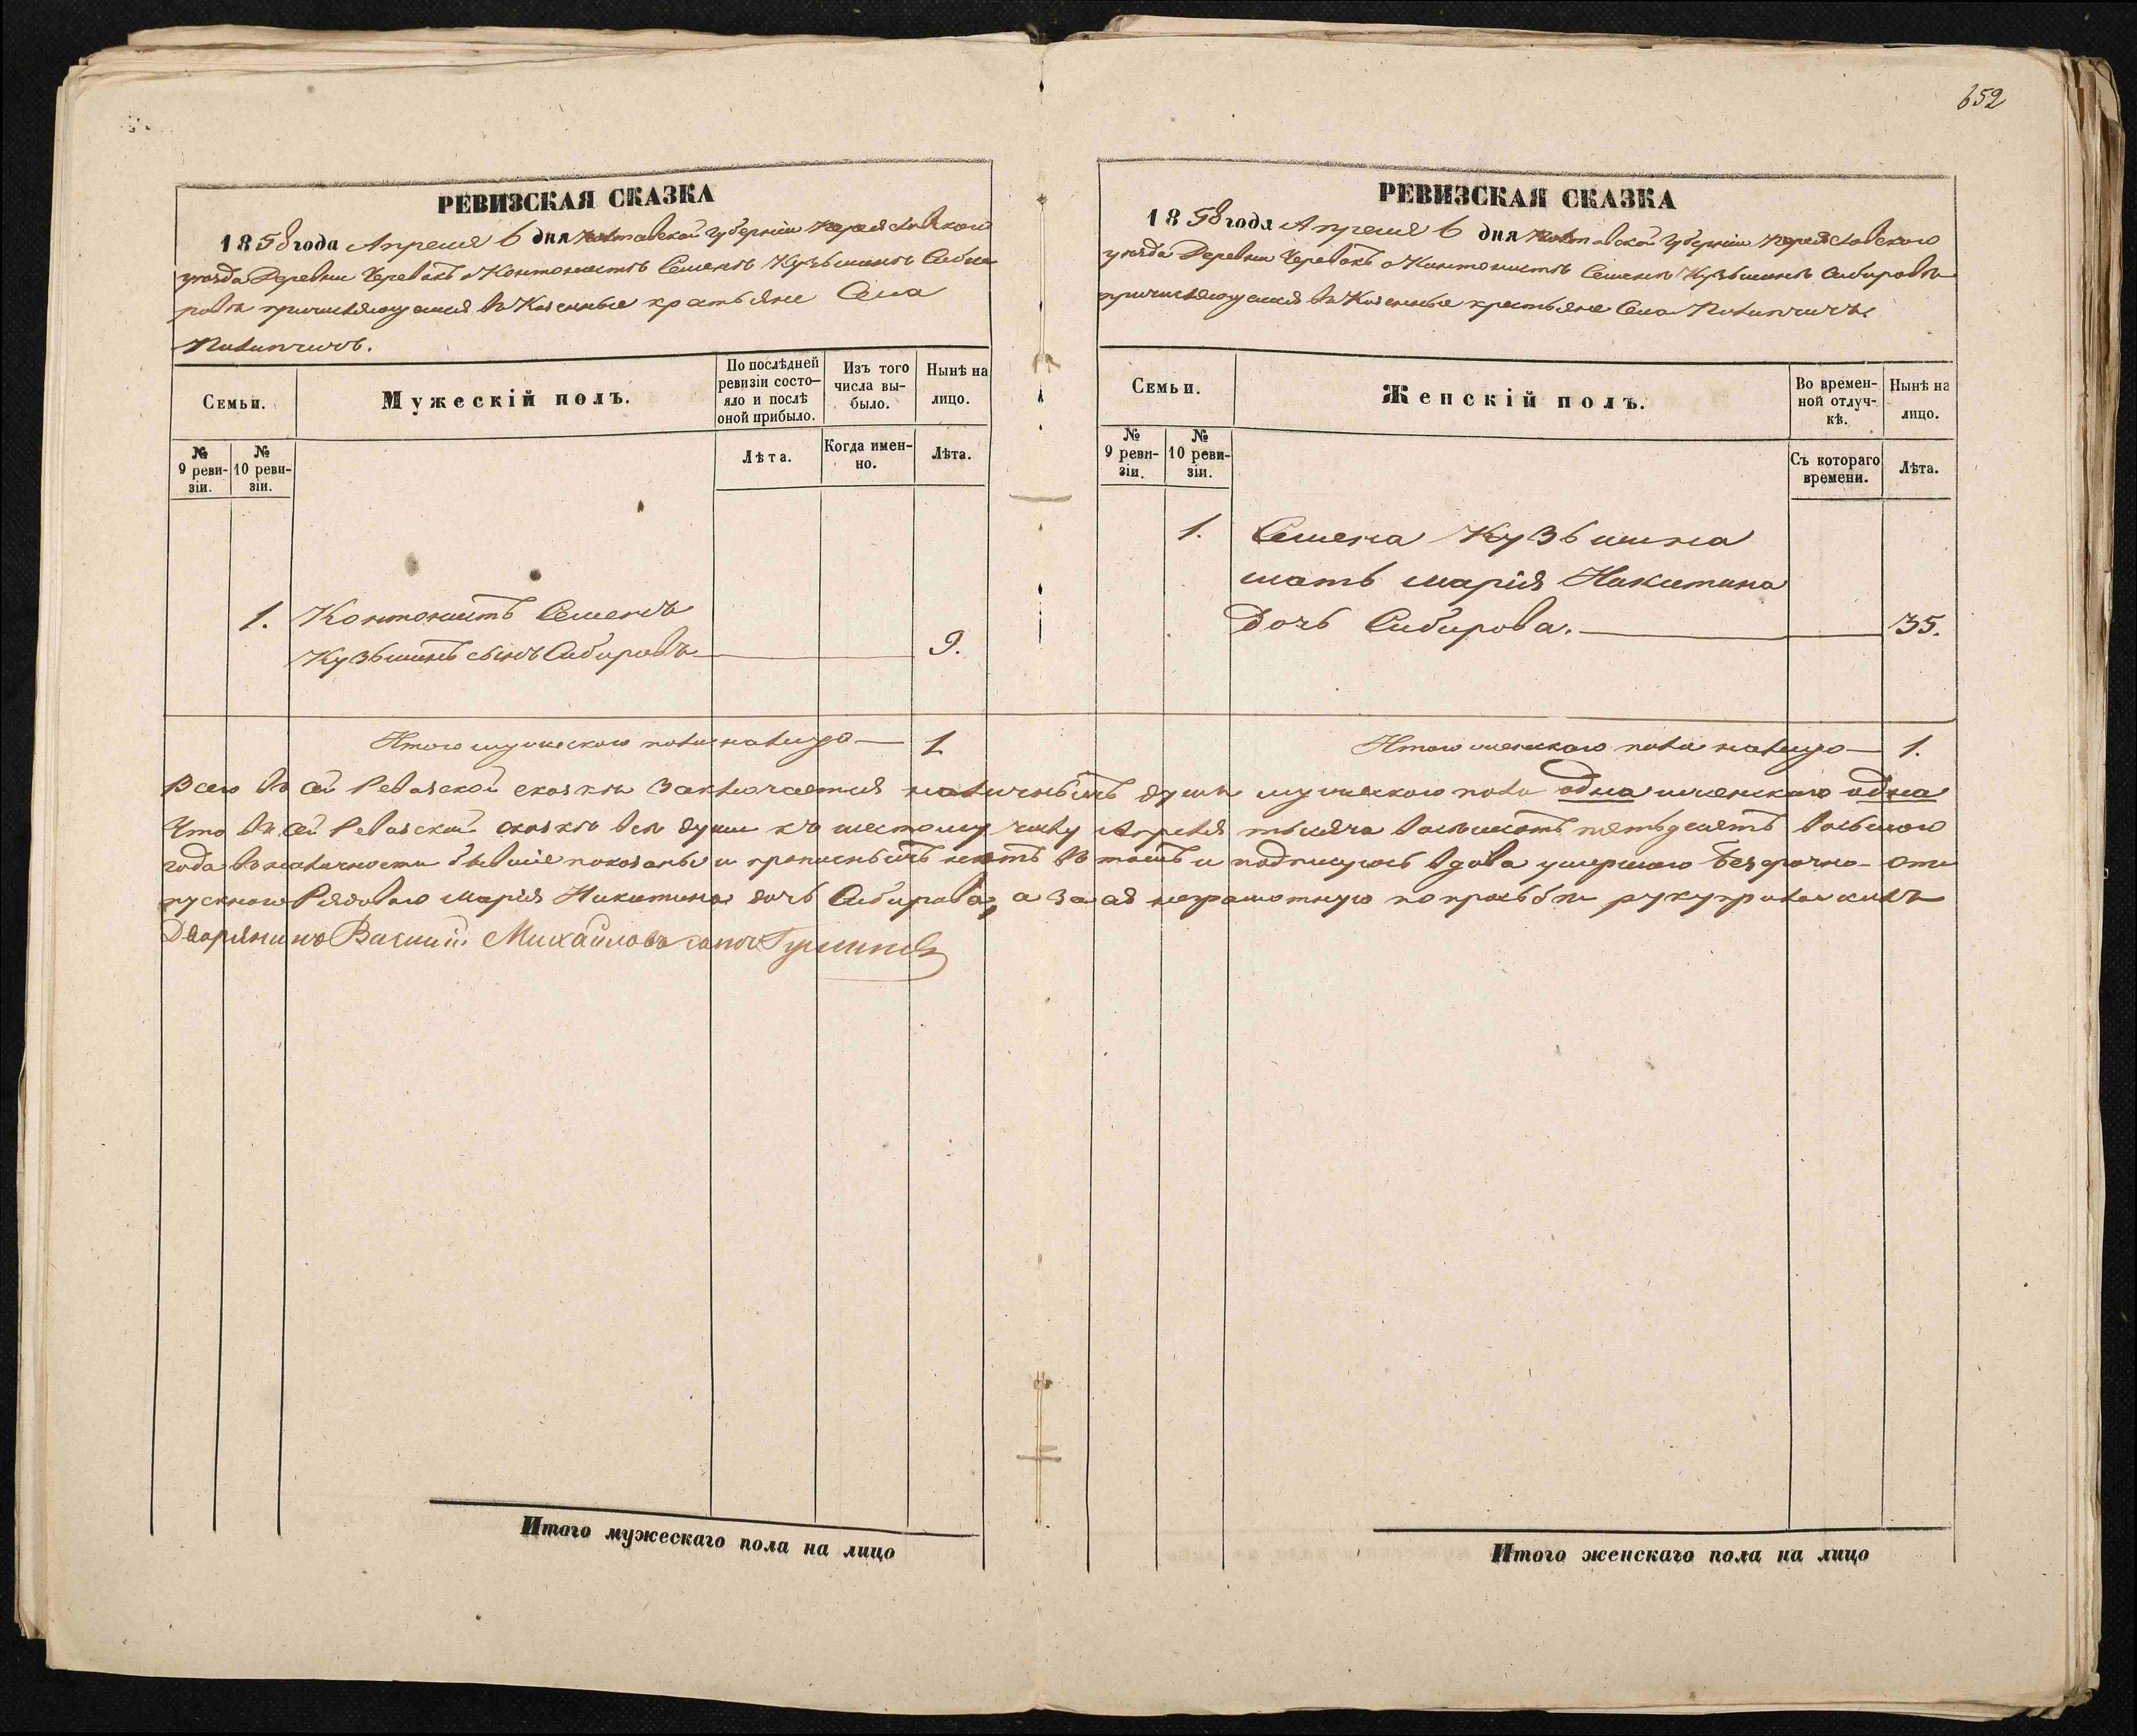 652
РЕВИЗСКАЯ СКАЗКА
1858 года Апреля 6 дня Полтавской Губерніи Переяславскаго
уезда Деревни Череватъ о Контонисте Семене Кузьмине Сиби-
рове причисляющемся въ Казенные крестьяне Села
Пилипчичъ.
Семьи.
Мужескій полъ.
По послѣдней ревизіи состо-
яло и послѣ оной прибыло.
Изъ того числа вы-
было.
Нынѣ на лицо.
№ 9 реви-
зіи.
№ 10 реви-
зіи.
Лѣта.
Когда имен-
но.
Лѣта.
1. Контонистъ Семенъ
Кузьминъ сынъ Сибировъ 9.
Итого мужескаго пола налицо 1
РЕВИЗСКАЯ СКАЗКА
1858 года Апреля 6 дня Полтавской Губерніи Переяславскаго
уезда Деревни Череватъ о Контонисте Семене Кузьмине Сибирове
причисляющемся въ Казенные крестьяне Села Пилипчичъ.
Семьи.
Женскій полъ.
Во времен-
ной отлуч-
кѣ.
Нынѣ на лицо.
№ 9 реви-
зіи.
№ 10 реви-
зіи.
Съ котораго времени.
Лѣта.
1. Семена Кузьмина
мать Марія Никитина
дочь Сибирова. 35.
Итого женскаго пола налицо 1.
Всего въ сей Ревизской сказке Заключается наличныхъ душъ мужескаго пола одна женскаго одна
Что въ сей Ревизской сказке все души къ шестому числу Апреля тысяча восемсотъ пятьдесятъ восьмого
года въ наличности бывшіе показаны и прописныхъ нетъ въ томъ и подписуюсь Вдова умершаго безсрочно-отп
пускнаго Рядоваго Марія Никитина дочь Сибирова, а за ея неграмотную по прозьбе руку приложилъ
Дворянинъ Василій Михайловъ сынъ
Итого мужескаго пола на лицо
Итого женскаго пола на лицо